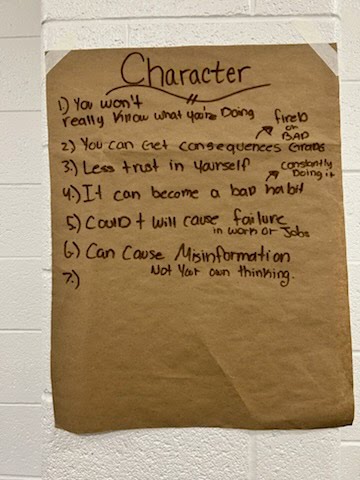 Character
1) You won't
really know what you're Doing
2) You can Get consequences
fired
or
BAD
Grads
3.) Less trust in yourself
constantly
Doing it
4.) It can become a bad habit
5.) Could + will cause failure
in work or Jobs
6.) Can Cause Misinformation
Not Your own thinking.
7.)